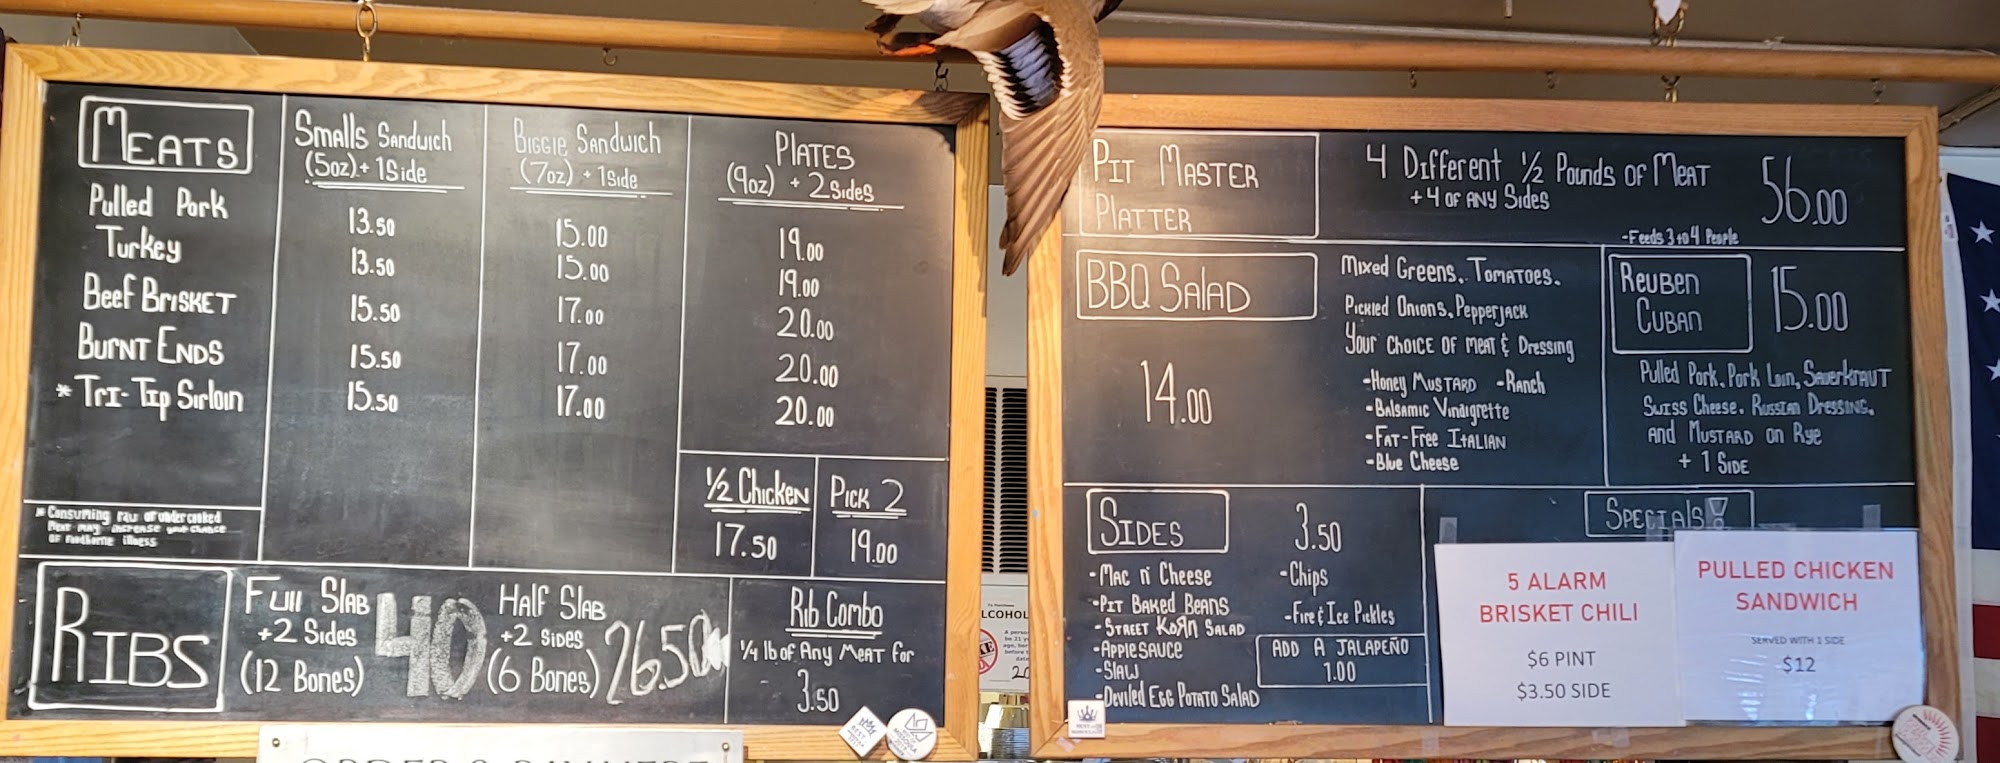 MEATS
Smalls Sandwich
(5oz) + 1 Side
Biggie Sandwich
(7oz) + 1 Side
PLATES
(9oz) + 2 Sides
Pulled Pork 13.50 15.00 19.00
Turkey 13.50 15.00 19.00
Beef Brisket 15.50 17.00 20.00
Burnt Ends 15.50 17.00 20.00
* Tri-Tip Sirloin 15.50 17.00 20.00
* Consuming raw or undercooked
Meat may increase your chance
of foodborne illness
1/2 Chicken
17.50
Pick 2
19.00
RIBS
Full Slab
+2 Sides
(12 Bones)
40
Half Slab
+2 Sides
(6 Bones)
26.50
Rib Combo
1/4 lb of Any Meat for
3.50
PIT MASTER
PLATTER
4 Different 1/2 Pounds of Meat
+ 4 of any Sides
56.00
-Feeds 3 to 4 People
BBQ Salad
14.00
Mixed Greens, Tomatoes,
Pickled Onions, Pepperjack
Your Choice of meat & Dressing
-Honey Mustard -Ranch
-Balsamic Vindigrette
-Fat-Free Italian
-Blue Cheese
Reuben
Cuban
15.00
Pulled Pork, Pork Loin, Sauerkraut
Swiss Cheese, Russian Dressing,
and Mustard on Rye
+ 1 Side
SIDES
3.50
-Mac n' Cheese
-Pit Baked Beans
-Street Korn Salad
-Applesauce
-Slaw
-Deviled Egg Potato Salad
-Chips
-Fire & Ice Pickles
ADD A JALAPEÑO
1.00
Specials!
5 ALARM
BRISKET CHILI
$6 PINT
$3.50 SIDE
PULLED CHICKEN
SANDWICH
SERVED WITH 1 SIDE
$12